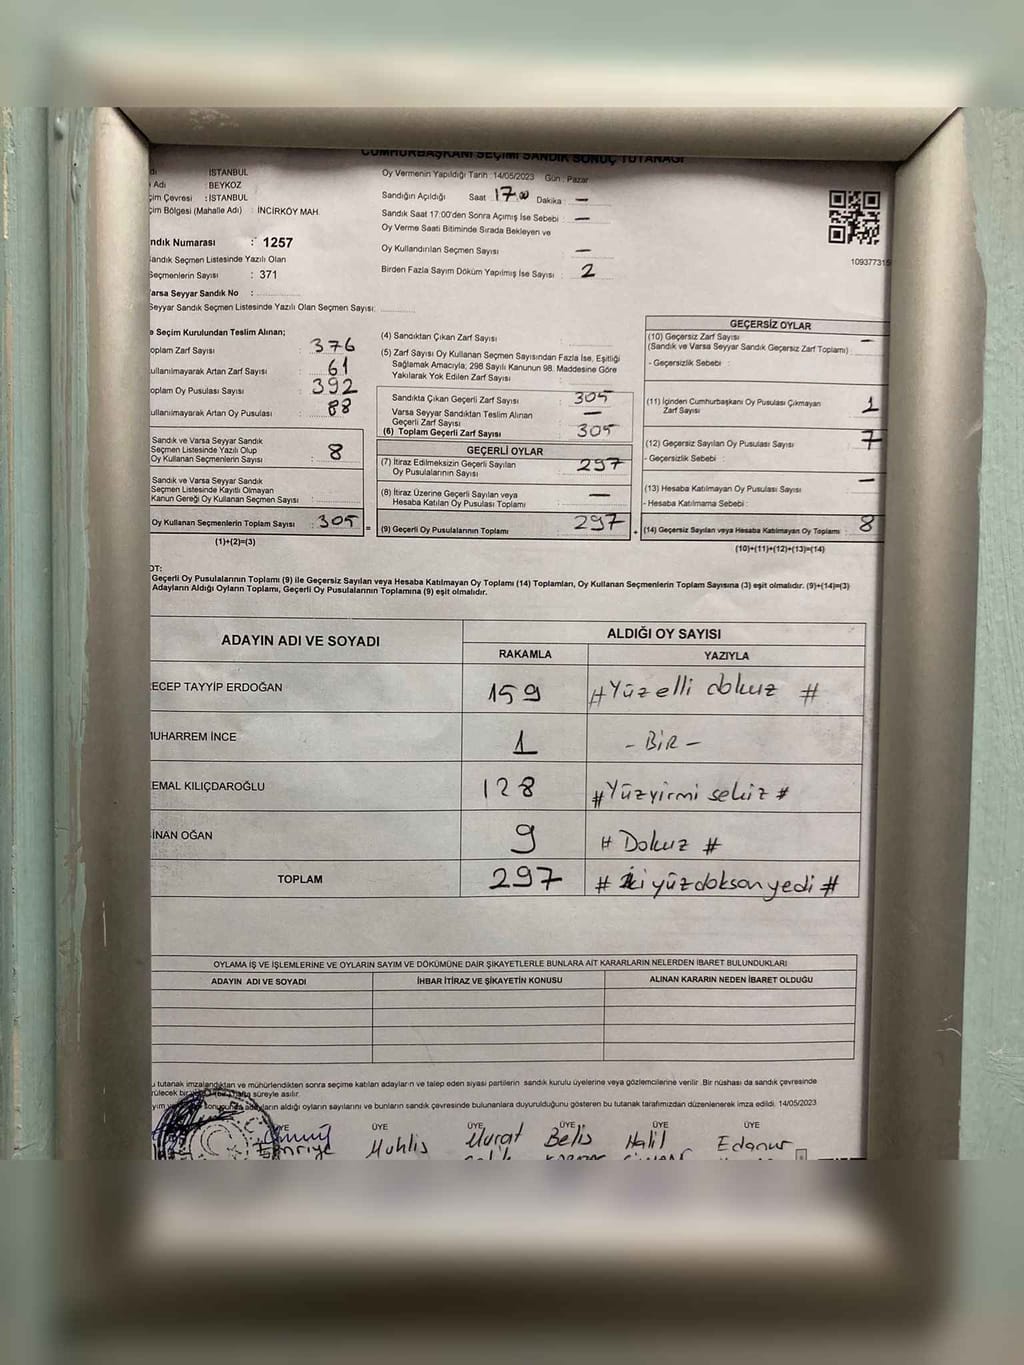 CUMHURBAŞKANI SEÇİMİ SANDIK SONUÇ TUTANAĞI
: İSTANBUL
Adı : BEYKOZ
çim Çevresi : İSTANBUL
çim Bölgesi (Mahalle Adı) : İNCİRKÖY MAH.
ndık Numarası : 1257
andık Seçmen Listesinde Yazılı Olan
Seçmenlerin Sayısı : 371
arsa Seyyar Sandık No :
Seyyar Sandık Seçmen Listesinde Yazılı Olan Seçmen Sayısı:
Oy Vermenin Yapıldığı Tarih : 14/05/2023 Gün : Pazar
Sandığın Açıldığı Saat 17.00 Dakika : —
Sandık Saat 17.00'den Sonra Açımış İse Sebebi : —
Oy Verme Saati Bitiminde Sırada Bekleyen ve
Oy Kullandırılan Seçmen Sayısı : —
Birden Fazla Sayım Döküm Yapılmış İse Sayısı : 2
109377315
e Seçim Kurulundan Teslim Alınan;
oplam Zarf Sayısı : 376
ullanılmayarak Artan Zarf Sayısı : 61
oplam Oy Pusulası Sayısı : 392
ullanılmayarak Artan Oy Pusulası : 88
Sandık ve Varsa Seyyar Sandık
Seçmen Listesinde Yazılı Olup
Oy Kullanan Seçmenlerin Sayısı : 8
Sandık ve Varsa Seyyar Sandık
Seçmen Listesinde Kayıtlı Olmayan
Kanun Gereği Oy Kullanan Seçmen Sayısı :
Oy Kullanan Seçmenlerin Toplam Sayısı : 305 =
(1)+(2)=(3)
(4) Sandıktan Çıkan Zarf Sayısı :
(5) Zarf Sayısı Oy Kullanan Seçmen Sayısından Fazla İse, Eşitliği
Sağlamak Amacıyla; 298 Sayılı Kanunun 98. Maddesine Göre
Yakılarak Yok Edilen Zarf Sayısı :
Sandıkta Çıkan Geçerli Zarf Sayısı : 305
Varsa Seyyar Sandıktan Teslim Alınan
Geçerli Zarf Sayısı : —
(6) Toplam Geçerli Zarf Sayısı : 305
GEÇERLİ OYLAR
(7) İtiraz Edilmeksizin Geçerli Sayılan
Oy Pusulalarının Sayısı : 297
(8) İtiraz Üzerine Geçerli Sayılan veya
Hesaba Katılan Oy Pusulası Toplamı : —
(9) Geçerli Oy Pusulalarının Toplamı : 297 +
GEÇERSİZ OYLAR
(10) Geçersiz Zarf Sayısı
(Sandık ve Varsa Seyyar Sandık Geçersiz Zarf Toplamı) : —
- Geçersizlik Sebebi :
(11) İçinden Cumhurbaşkanı Oy Pusulası Çıkmayan
Zarf Sayısı : 1
(12) Geçersiz Sayılan Oy Pusulası Sayısı : 7
- Geçersizlik Sebebi :
(13) Hesaba Katılmayan Oy Pusulası Sayısı : —
- Hesaba Katılmama Sebebi :
(14) Geçersiz Sayılan veya Hesaba Katılmayan Oy Toplamı : 8
(10)+(11)+(12)+(13)=(14)
OT:
Geçerli Oy Pusulalarının Toplamı (9) ile Geçersiz Sayılan veya Hesaba Katılmayan Oy Toplamı (14) Toplamları, Oy Kullanan Seçmenlerin Toplam Sayısına (3) eşit olmalıdır. (9)+(14)=(3)
Adayların Aldığı Oyların Toplamı, Geçerli Oy Pusulalarının Toplamına (9) eşit olmalıdır.
ADAYIN ADI VE SOYADI ALDIĞI OY SAYISI
RAKAMLA YAZIYLA
ECEP TAYYİP ERDOĞAN 159 # Yüz elli dokuz #
UHARREM İNCE 1 - BİR -
EMAL KILIÇDAROĞLU 128 # Yüzyirmi sekiz #
İNAN OĞAN 9 # Dokuz #
TOPLAM 297 # İkiyüzdoksanyedi #
OYLAMA İŞ VE İŞLEMLERİNE VE OYLARIN SAYIM VE DÖKÜMÜNE DAİR ŞİKAYETLERLE BUNLARA AİT KARARLARIN NELERDEN İBARET BULUNDUKLARI
ADAYIN ADI VE SOYADI İHBAR İTİRAZ VE ŞİKAYETİN KONUSU ALINAN KARARIN NEDEN İBARET OLDUĞU
u tutanak imzalandıktan ve mühürlendikten sonra seçime katılan adayların ve talep eden siyasi partilerin sandık kurulu üyelerine veya gözlemcilerine verilir. Bir nüshası da sandık çevresinde
rülecek bir süreyle asılır.
yım ve sonucunda adayların aldığı oyların sayılarını ve bunların sandık çevresinde bulunanlara duyurulduğunu gösteren bu tutanak tarafımızdan düzenlenerek imza edildi. 14/05/2023
ÜYE ÜYE ÜYE ÜYE ÜYE
Emriye Muhlis Murat Belis Halil Edanur